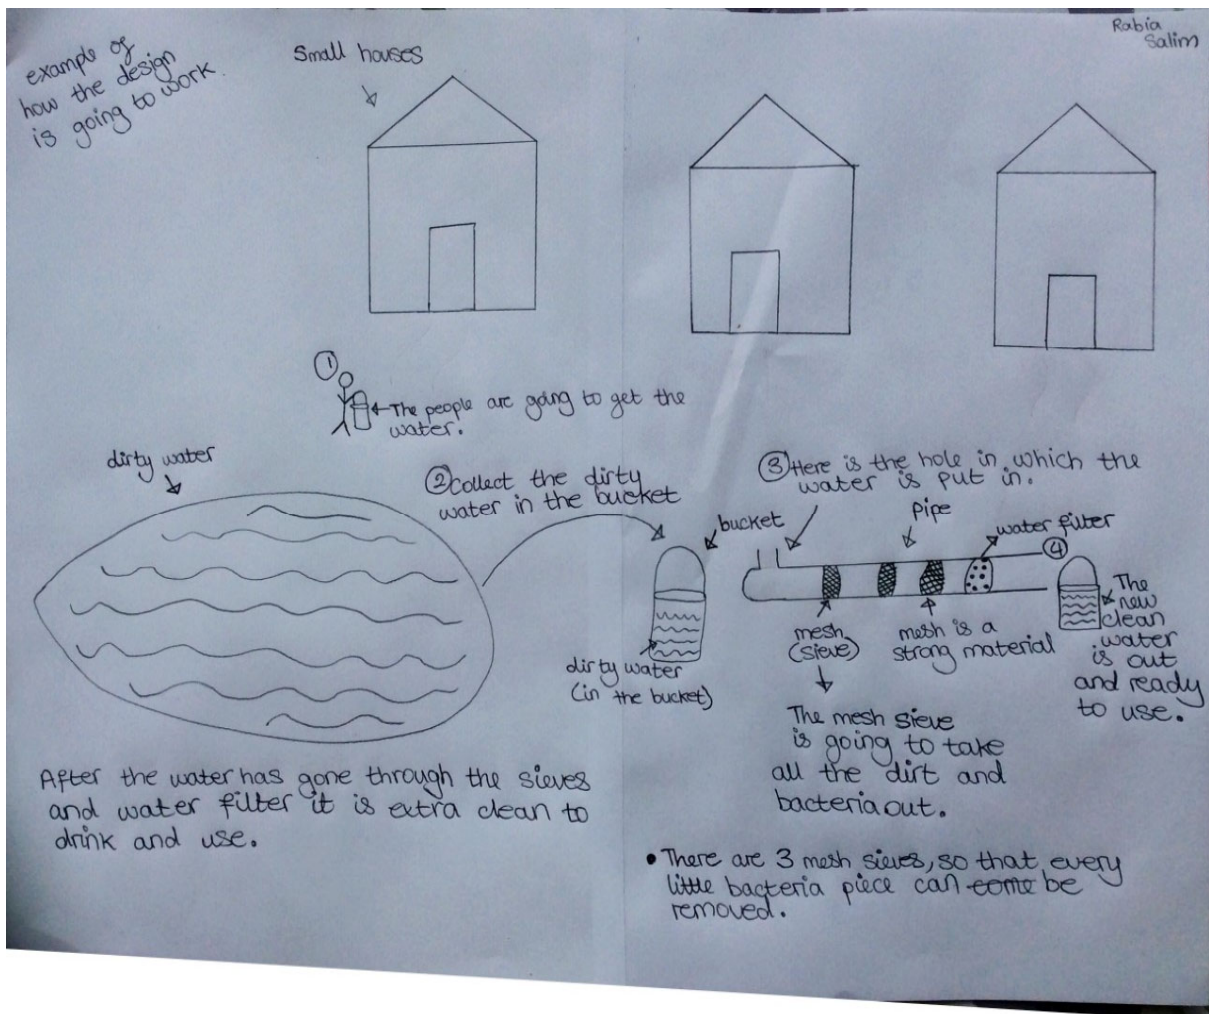 Rabia
Salim
example of
how the design
is going to work.
Small houses
1
The people are going to get the
water.
dirty water
2 Collect the dirty
water in the bucket
3 Here is the hole in which the
water is put in.
bucket
pipe
water filter
4
The
new
clean
water
is out
and ready
to use.
mesh
(sieve)
mesh is a
strong material
dirty water
(in the bucket)
The mesh sieve
is going to take
all the dirt and
bacteria out.
After the water has gone through the sieves
and water filter it is extra clean to
drink and use.
• There are 3 mesh sieves, so that every
little bacteria piece can come be
removed.